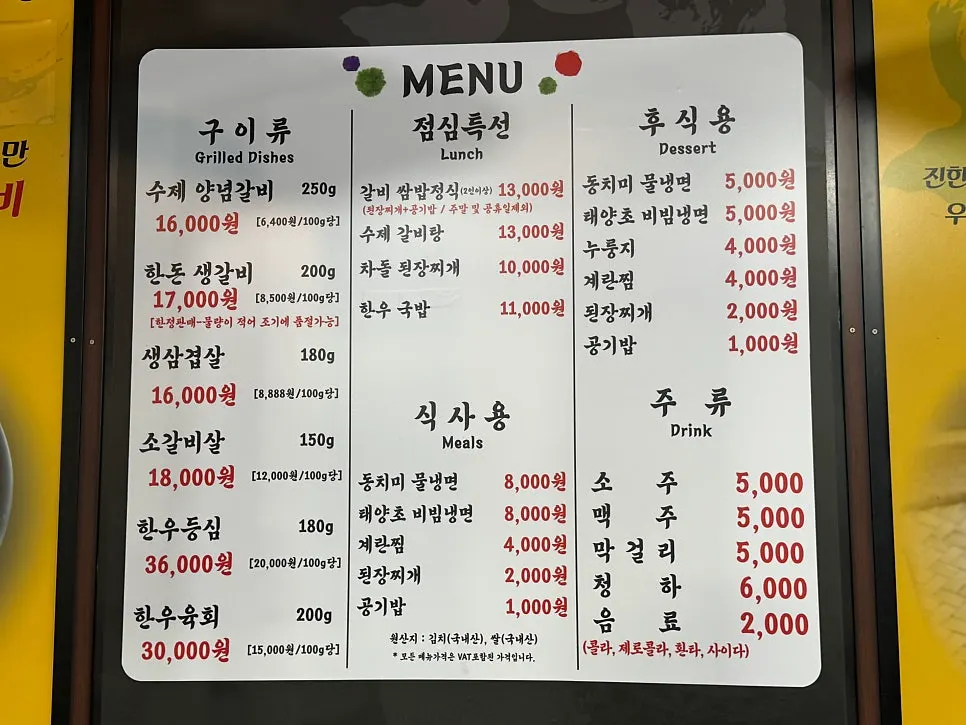 MENU
구이류
Grilled Dishes
수제 양념갈비 250g
16,000원 [6,400원/100g당]
한돈 생갈비 200g
17,000원 [8,500원/100g당]
[한정판매-물량이 적어 조기에 품절가능]
생삼겹살 180g
16,000원 [8,888원/100g당]
소갈비살 150g
18,000원 [12,000원/100g당]
한우등심 180g
36,000원 [20,000원/100g당]
한우육회 200g
30,000원 [15,000원/100g당]
점심특선
Lunch
갈비 쌈밥정식(2인이상) 13,000원
(된장찌개+공기밥 / 주말 및 공휴일제외)
수제 갈비탕 13,000원
차돌 된장찌개 10,000원
한우 국밥 11,000원
식사용
Meals
동치미 물냉면 8,000원
태양초 비빔냉면 8,000원
계란찜 4,000원
된장찌개 2,000원
공기밥 1,000원
원산지 : 김치(국내산), 쌀(국내산)
* 모든 메뉴가격은 VAT포함된 가격입니다.
후식용
Dessert
동치미 물냉면 5,000원
태양초 비빔냉면 5,000원
누룽지 4,000원
계란찜 4,000원
된장찌개 2,000원
공기밥 1,000원
주류
Drink
소주 5,000
맥주 5,000
막걸리 5,000
청하 6,000
음료 2,000
(콜라, 제로콜라, 환타, 사이다)
만
비
진한
우